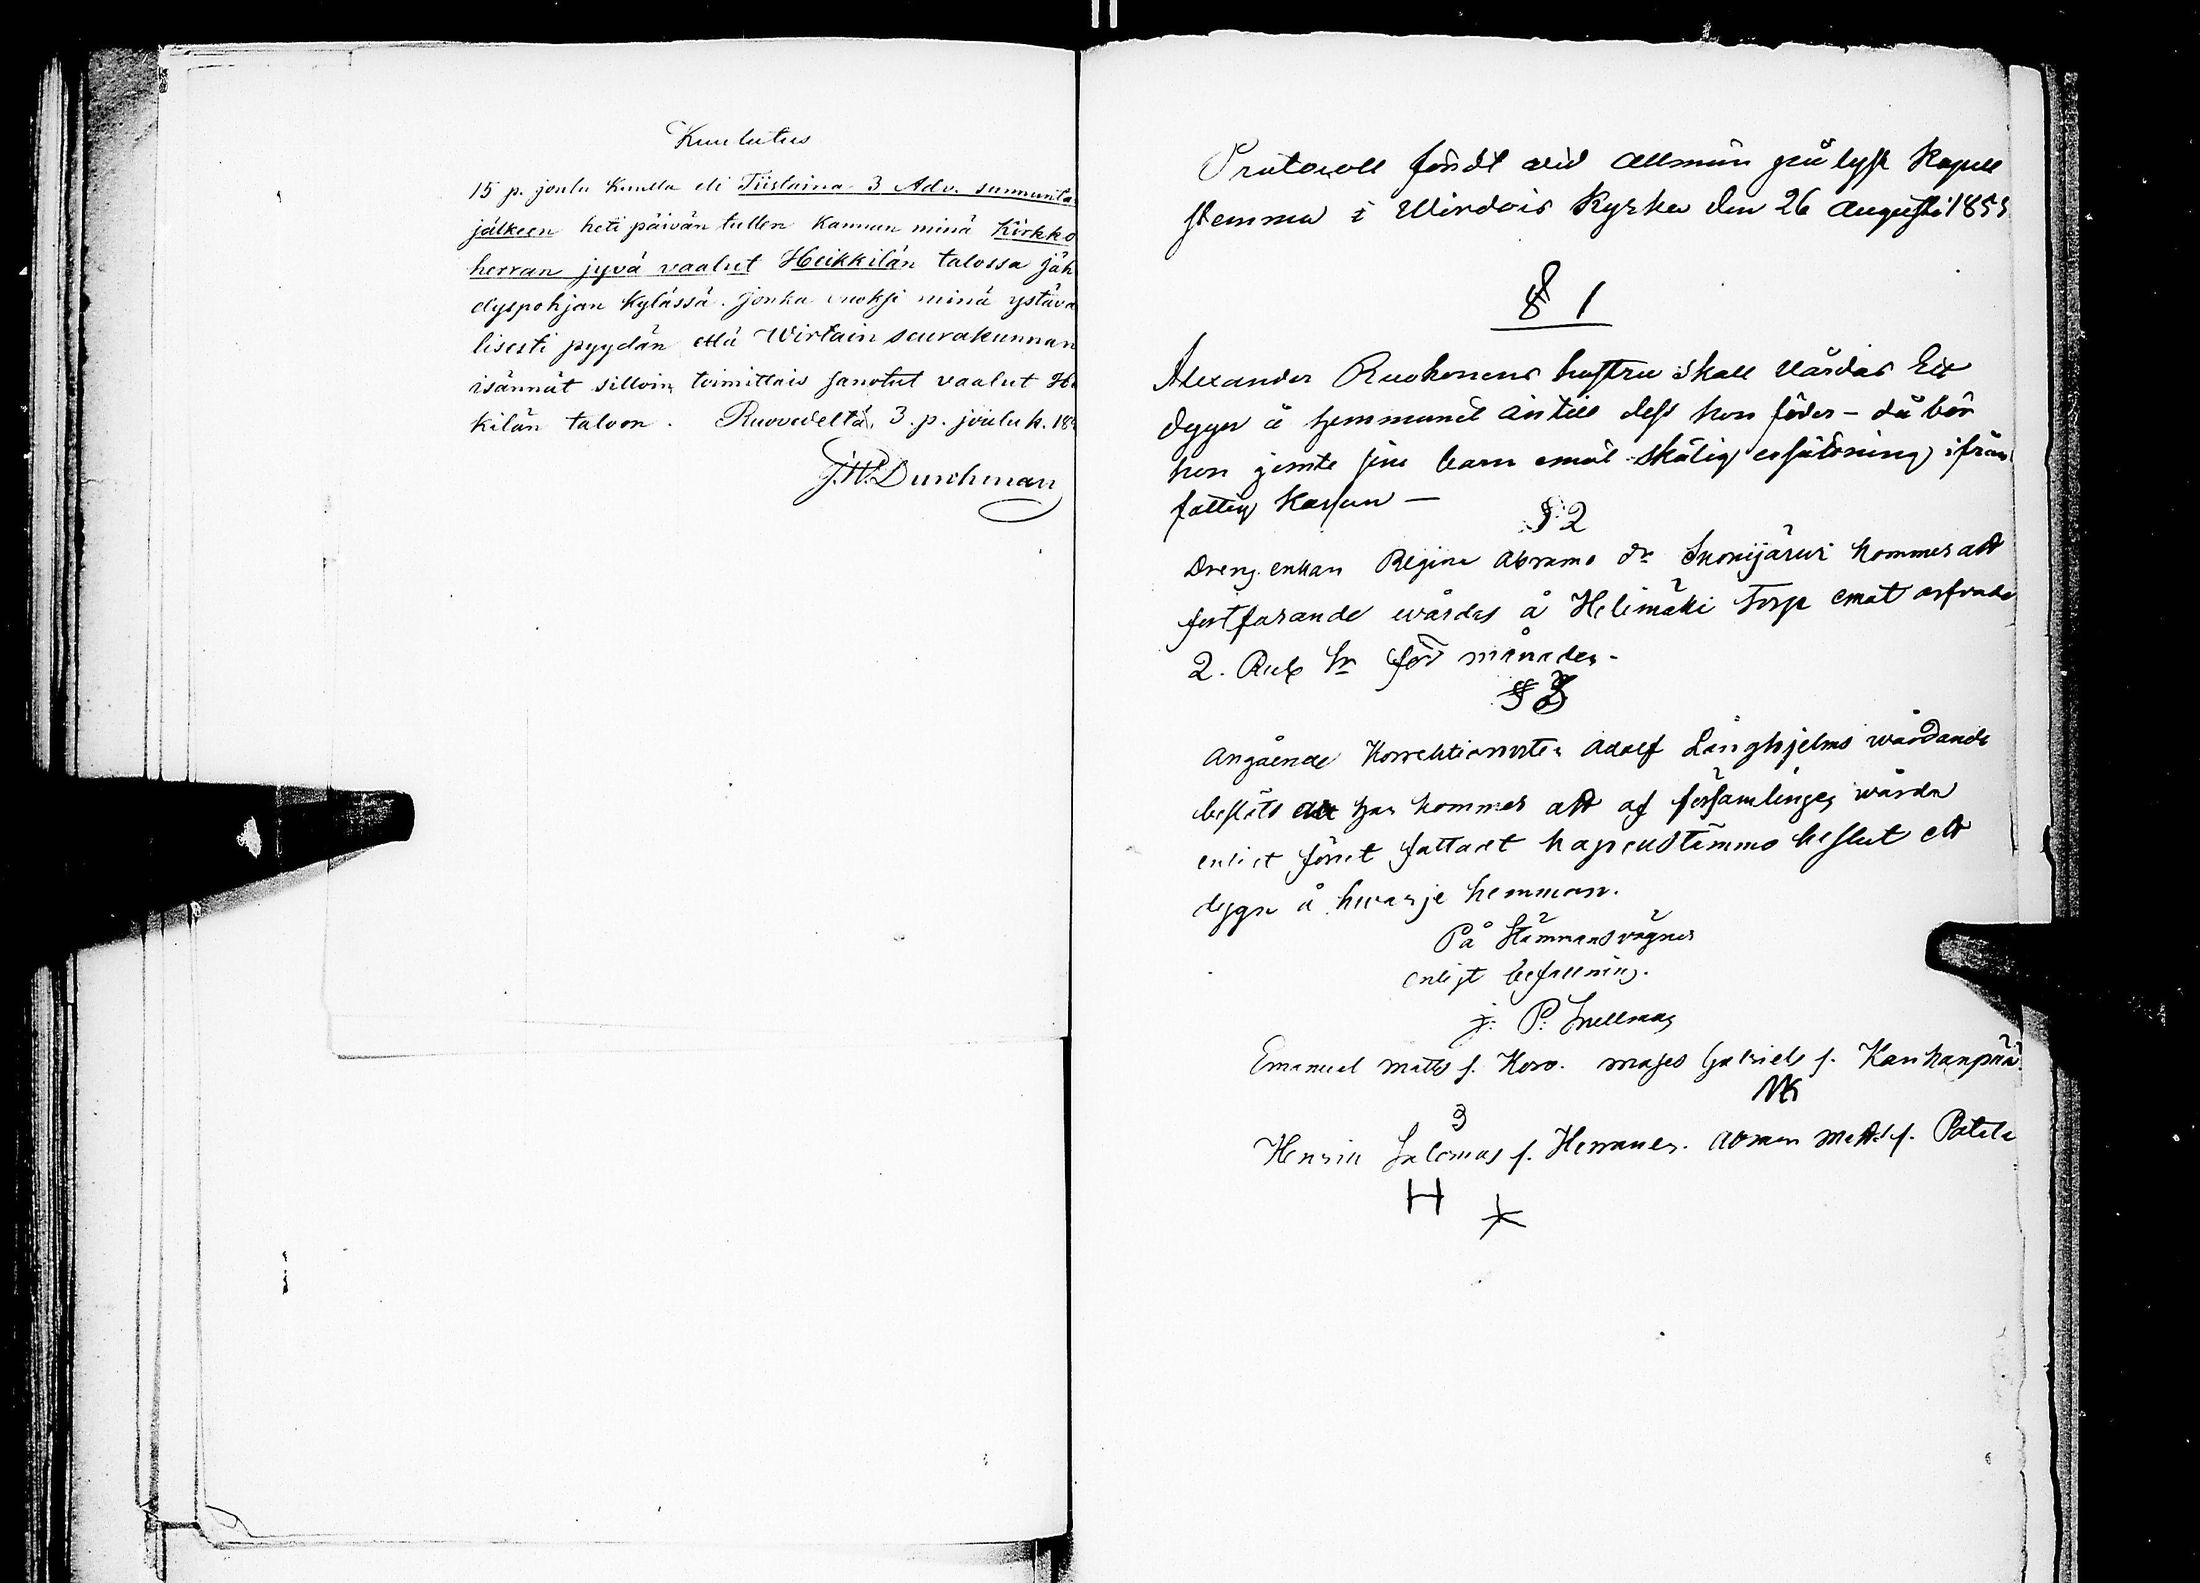 Kuulutus
15 p. joulu kuulla eli Tiistaina 3 Adv. sunnunta
jälkeen heti päivän tullen kannun minä Kirkko
herran jyvä vaalut Heikkilän talossa Jäh
dyspohjan kylässä. jonka vuoksi minä ystävä
lisesti pyydän että Wirtain seurakunnan
isännät silloin toimittais sanotut vaalut He
kilän taloon. Ruovedeltä, 3. p. jouluk. 18
J.W. Durchman
Protocoll fördt vid Allmän pålyst Kapell
stemma i Wirdois Kyrka den 26 Augusti 185
§ 1
Alexander Ruokonens hustru skall vårdas Ett
dygn å hemmanet intill dess hon föder - då bör
hon jemte sine barn emot skälig ersättning ifrån
fattig Kassan —
§ 2
Dreng enkan Regina Abrams dr kommer att
fortfarande wårdas å Helimäki Torp emot
2. Rub Sr för månaden.
§ 3
Angående Adolf Långhjelms wårdande
beslöts att han kommer att af församlingen wårdas
enligt förut fattadt kapellstämmo beslut ett
dygn å hwarje hemman.
På Stämmans vägnar
enligt befallning.
J. P. Snellman
Emanuel Matts s. Koro. Moses Gabriels s. Kauhanpää
MK
Henric Salomos s. Herranen. Abram Matts s. Patala
H